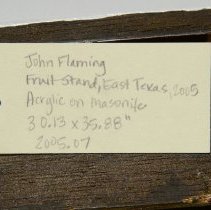 John Flaming
Fruit Stand, East Texas, 2005
Acrylic on masonite
30.13 x 35.88"
2005.07